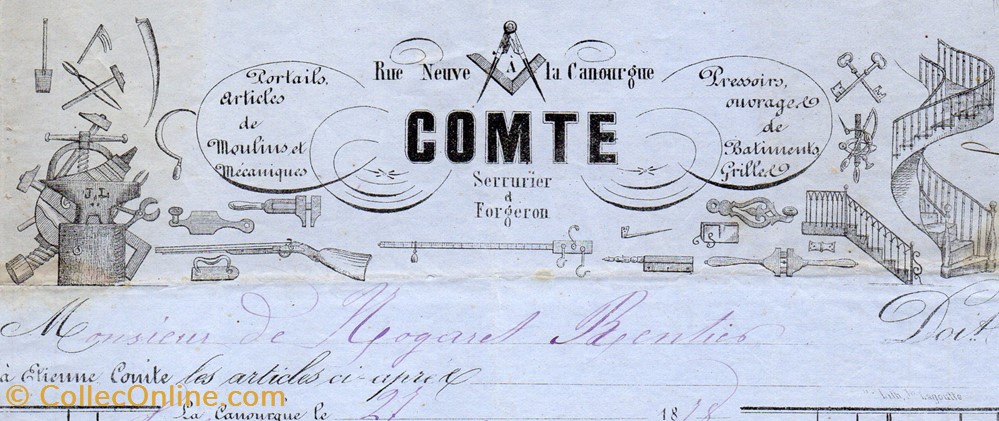 Rue Neuve A la Canourgue
Portails,
Articles
de
Moulins et
Mécaniques
COMTE
Serrurier
&
Forgeron
Pressoirs,
ouvrages
de
Batiments,
Grilles
J.L
Monsieur de Nogaret Rentier Doit
à Etienne Comte les articles ci-après
La Canourgue le 27 18
Lith. Lagoutte
© CollecOnline.com